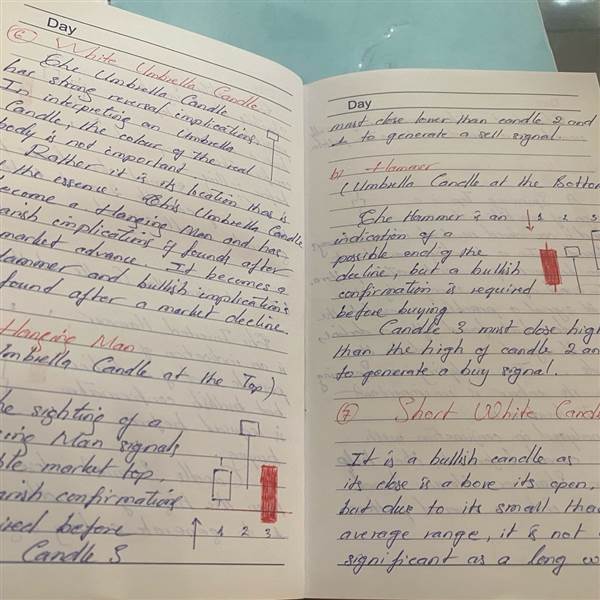 Day
(6) White Umbrella Candle
The Umbrella Candle
has strong reversal implications.
In interpreting an Umbrella
Candle, the colour of the real
body is not important
Rather it is its location that is
the essence. This Umbrella Candle
become a Hanging Man and has
arish implications if found after
market advance. It becomes a
Hammer and bullish implications
found after a market decline.
Hanging Man
Umbrella Candle at the Top)
he sighting of a
ging Man signals
ble market top.
arish confirmation
ired before
Candle 3
1 2 3
Day
must close lower than candle 2 and
1 to generate a sell signal.
b) Hammer
(Umbrella Candle at the Bottom
The Hammer is an
indication of a
possible end of the
decline, but a bullish
confirmation is required
before buying.
1 2 3
Candle 3 must close high
than the high of candle 2 an
to generate a buy signal.
(7) Short White Cand
It is a bullish candle as
its close is above its open,
but due to its small tha
average range, it is not
significant as a long w